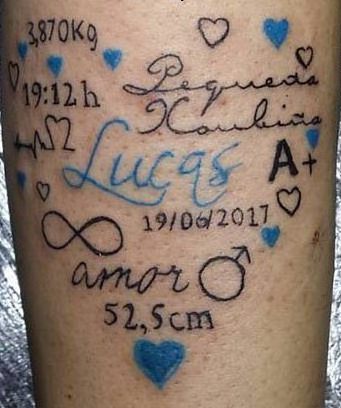 3,870Kg
19:12h
Pequena
Lucas
A+
19/06/2017
amor
52,5cm